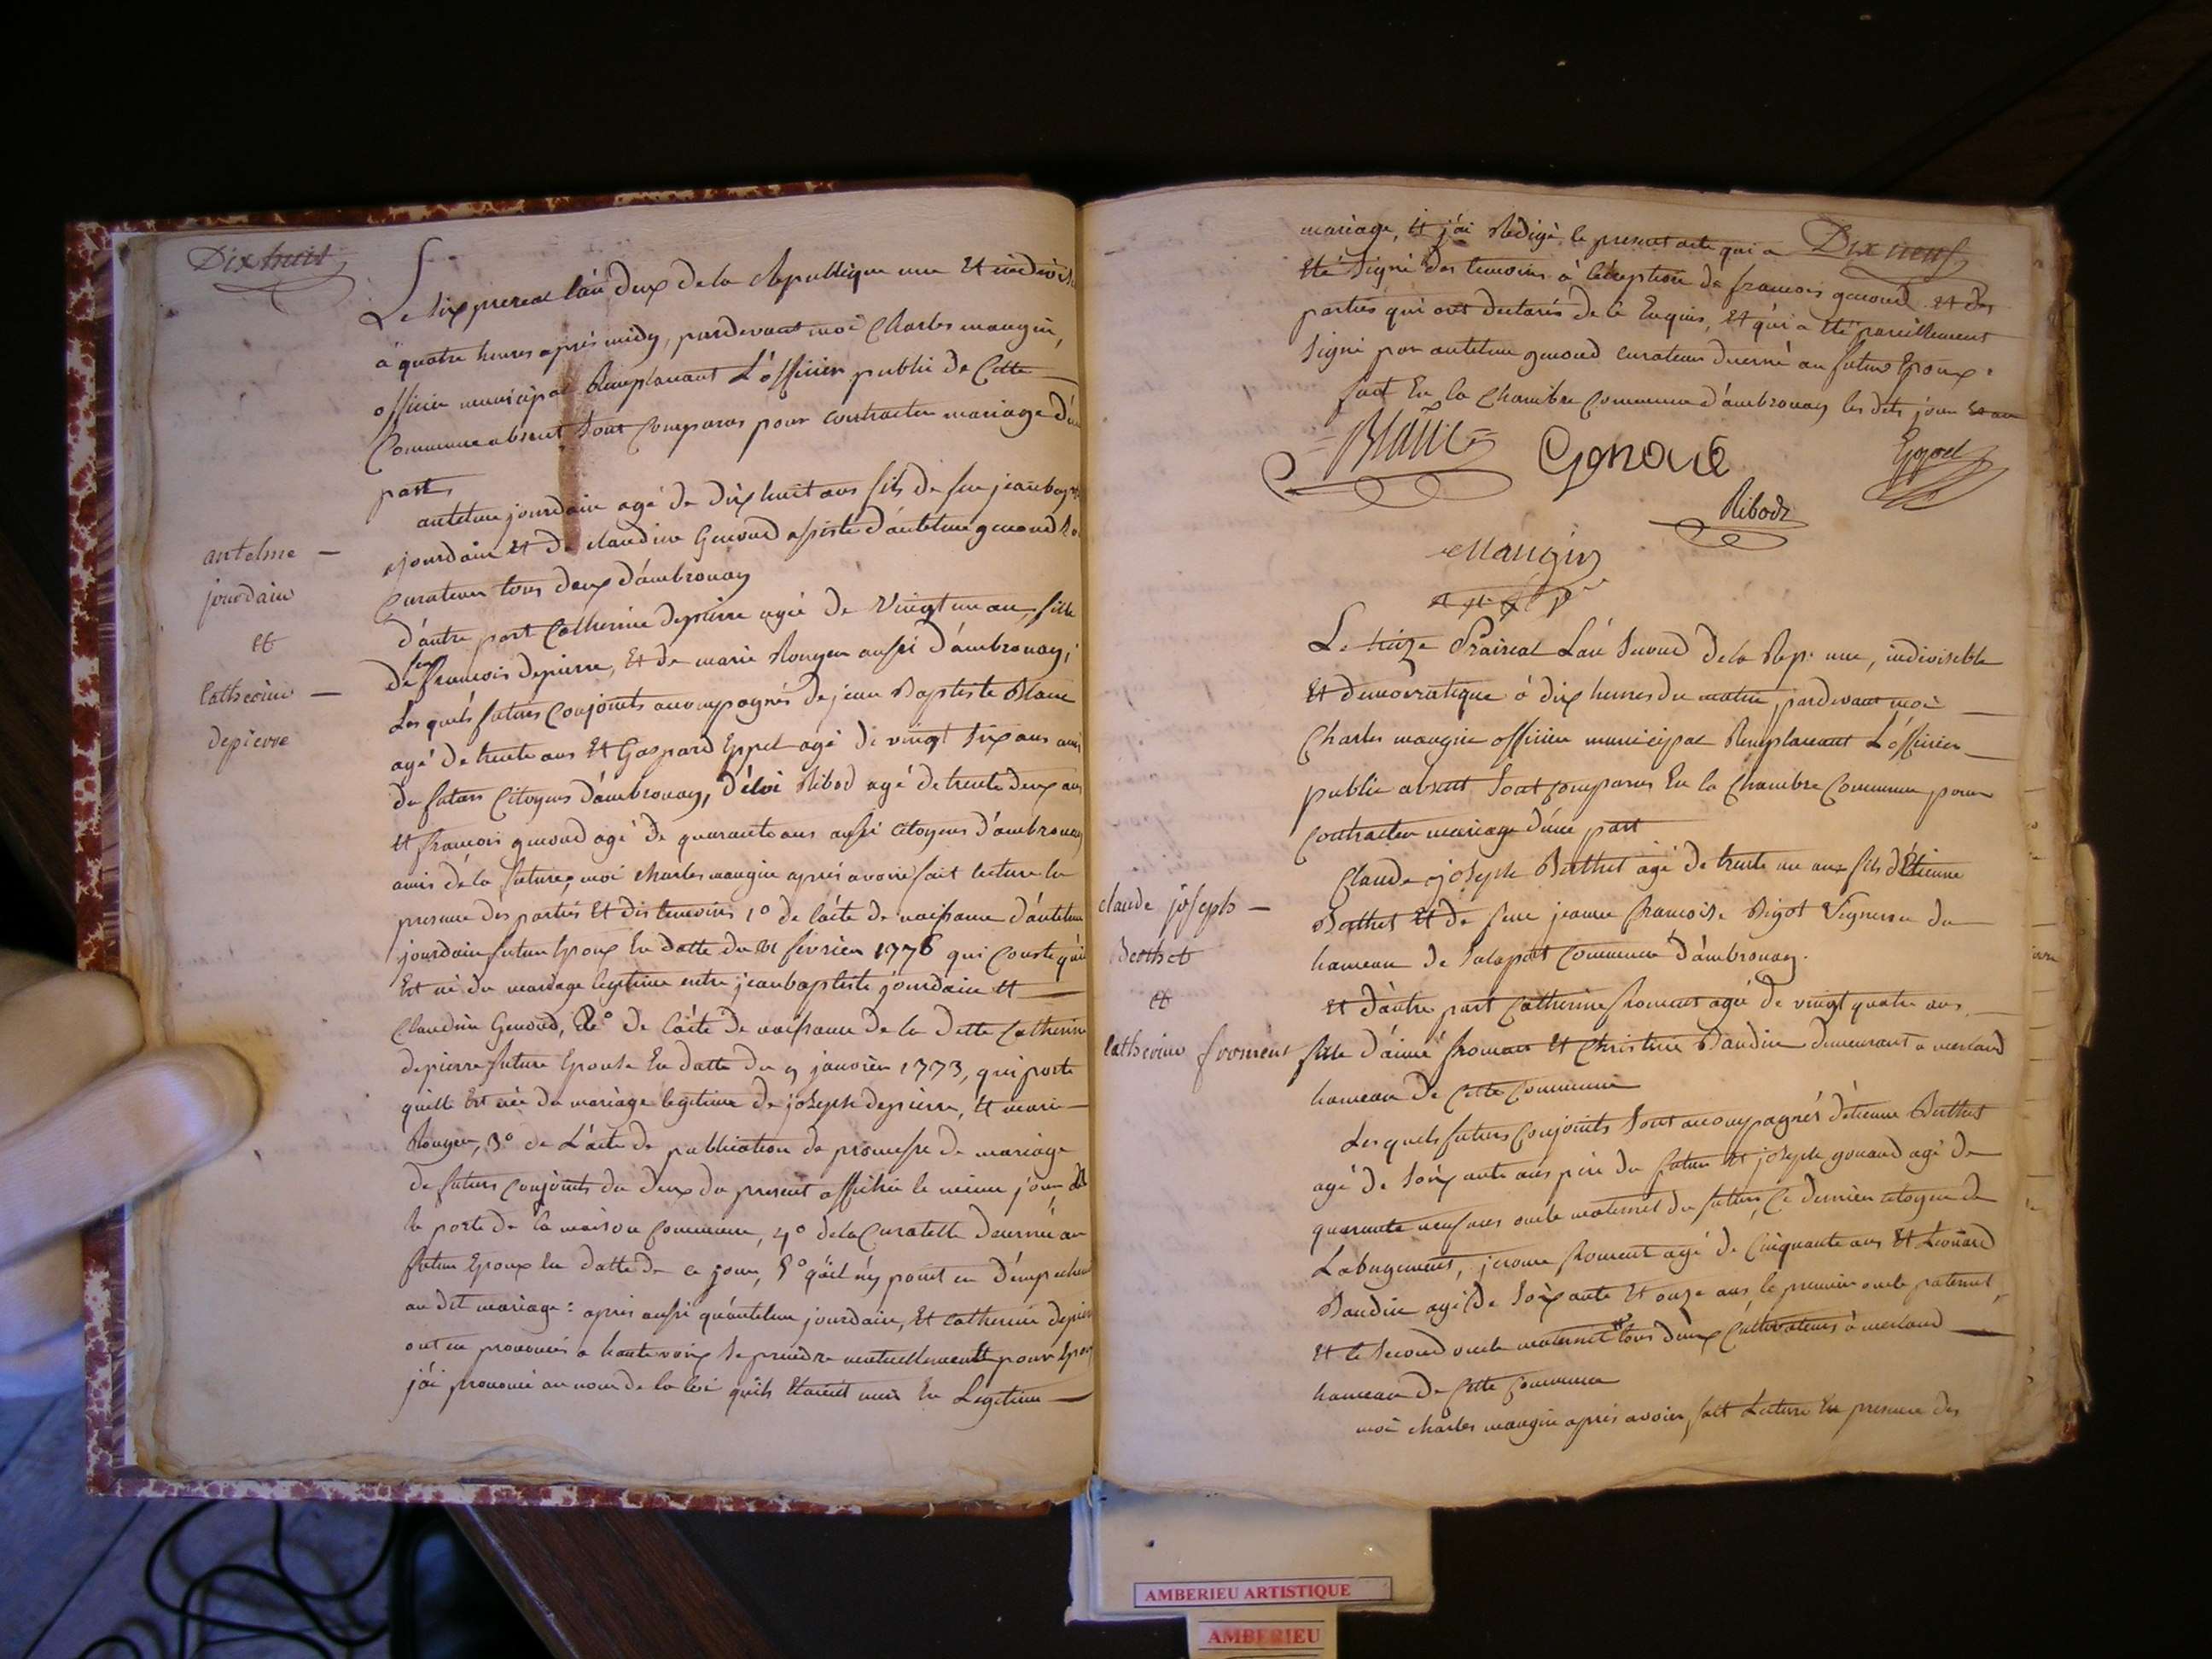 Dix huit
Le six prereal l'an deux de la Republique une Et indivisi
à quatre heures après midy, pardevant moi Charles mangin,
officier municipal Remplacant L'officier public de Cette
Commune absent sont Comparus pour contracter mariage d'u
part
antelme jourdain agé de dix huit ans fils de feu jean bapt
jourdain Et de claudine Genoud assisté d'antelme genoud
Curateur tous deux d'ambronay
d'autre part Catherine depierre agée de vingt un an, fille
de feu francois depierre, Et de marie Rougeu aussi d'ambronay,
Les quels futurs Conjoints accompagnés de jean Baptiste Blanc
agé de trente ans Et Gaspard Eppel agé de vingt six ans amis
du futurs Citoyens d'ambronay, d'éloi Ribod agé de trente deux ans
et francois genoud agé de quarante ans aussi citoyens d'ambronay
amis de la future, moi charles mangin après avoir fait lecture en
presence des parties Et des temoins 1° de l'acte de naissance d'antelme
jourdain futur Epoux En datte du 21 février 1776 qui Conste qu'il
Est né du mariage legitime entre jean baptiste jourdain et
Claudine Genoud, 2e° de l'acte de naissance de la dette Catherine
depierre future Epouse En datte du 9 janvier 1773, qui porte
qu'elle Est née du mariage legitime de joseph depierre, Et marie
Rougeu, 3° de L'acte de publication de promesse de mariage
de futurs Conjoints du deux du present affichée le même jour
la porte de la maison Commune, 4° de la Curatelle decernée au
futur Epoux En datte de ce jour, 5° qu'il n'y point eu d'empechem
au dit mariage : après aussi qu'antelme jourdain, Et Catherine depier
ont eu prononcés a haute voix se prendre mutuellement pour Epou
j'ai prononcé au nom de la loi qu'ils Etaient unis En Legitime
antelme
jourdain
et
Catherine
depierre
Dix neuf
mariage, Et j'ai Redigé le present acte qui a
Eté Signé des temoins à l'éxception de francois genoud et des
parties qui ont declarés de ce Enquis, Et qui a Eté pareillement
Signé par antelme genoud curateur decerné au futur Epoux.
fait En la Chambre Commune d'ambronay les dits jour Et an
Blanc
Genoud
Eppel
Ribod
Mangin
Le treize Prairial L'an Second de la Rep. une, indivisible
Et democratique à dix heures du matin, pardevant moi
Charles mangin officier municipal Remplacant L'officier
public absent Sont Comparus En la Chambre Commune pour
Contracter mariage d'une part
Claude joseph Berthet agé de trente un ans fils d'Etienne
Berthet Et de feue jeanne francoise Bigot Vigneron du
hameau de Salaport Commune d'ambronay.
et d'autre part Catherine froment agée de vingt quatre ans
fille d'aimé froment Et Christine Baudin demeurant a merland
hameau de Cette Commune
Les quels futurs Conjoints Sont accompagnés d'etienne Berthet
agé de soixante ans père du futur Et joseph gonand agé de
quarante neuf ans oncle maternel du futur, Ce dernier citoyen de
Labugement, jerome froment agé de Cinquante ans Et Léonard
Baudin agé de soixante Et onze ans, le premier oncle paternel,
Et le Second oncle maternel tous deux Cultivateurs à merland
hameau de Cette Commune
moi charles mangin après avoir fait Lecture En presence des
claude joseph
Berthet
et
Catherine froment
AMBERIEU ARTISTIQUE
AMBERIEU